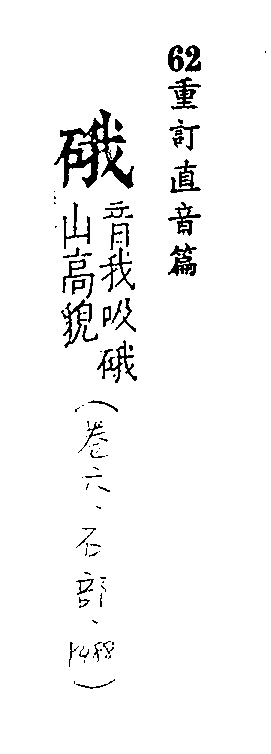 62重訂直音篇
硪
音我吸硪
山高貌
(卷六、石部、1488)